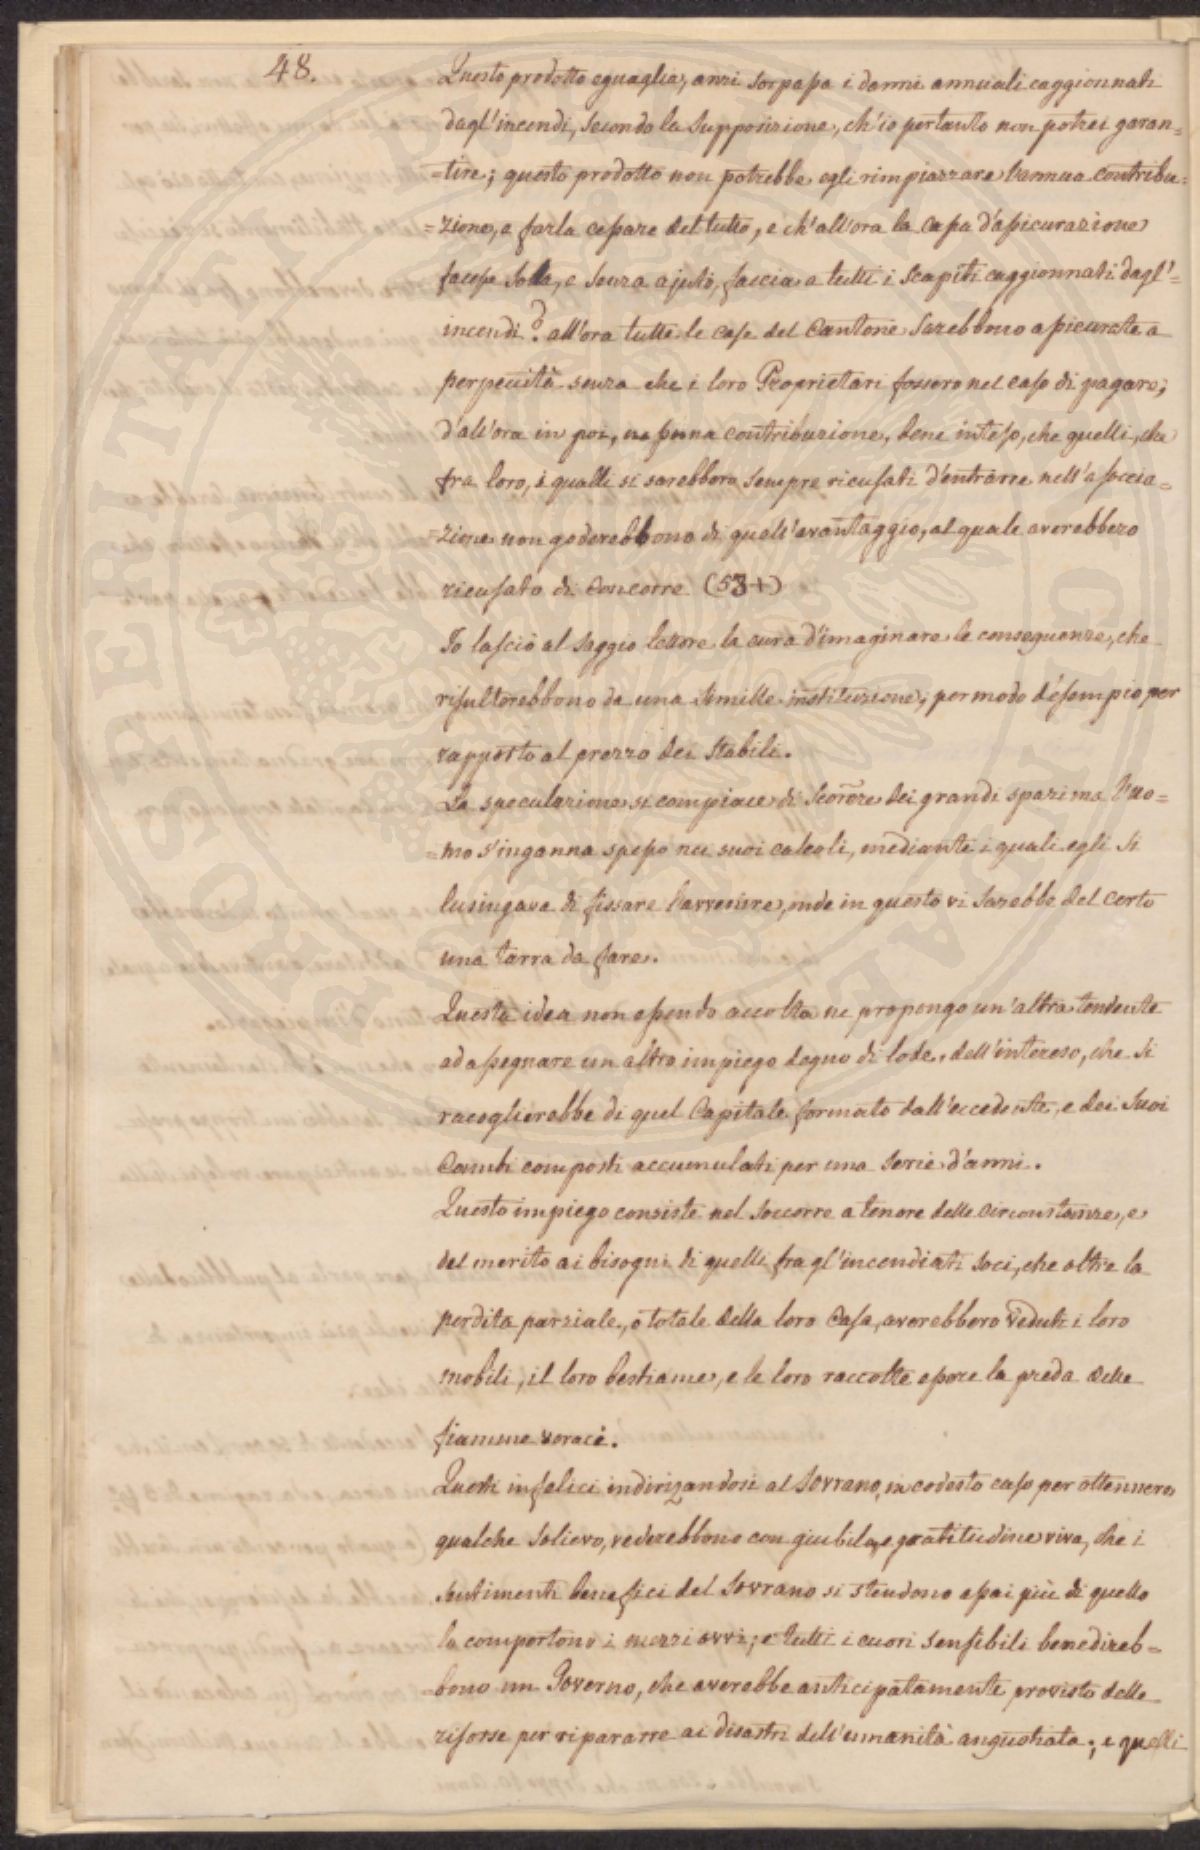 48.
Questo prodotto eguaglia, anzi sorpassa i danni annuali caggionnati
dagl'incendi, secondo la supposizione, ch'io pertanto non potrei garan=
=tire; questo prodotto non potrebbe egli rimpiazzare l'annua contribu=
=zione, e farla cessare del tutto, e ch'all'ora la Cassa d'assicurazione
facesse sola, e senza ajuto, faccia a tutti i scapiti caggionnati dagl'=
incendi? all'ora tutte le case del Cantone sarebbono assicurate a
perpetuità senza che i loro Proprietari fossero nel caso di pagare;
d'all'ora in poi, nessuna contribuzione, bene inteso, che quelli, che
fra loro, i qualli si sarebbero sempre ricusati d'entrarre nell'associa=
=zione non goderebbono di quell'avantaggio, al quale averebbero
ricusato di Concorre (53+)
Io lascio al saggio lettore la cura d'imaginare le conseguenze, che
risulterebbono da una simille instituzione; per modo d'esempio per
rapporto al prezzo dei stabili.
La speculazione si compiace di scorrere dei grandi spazi ma l'uo=
=mo s'inganna spesso nei suoi calcoli, mediante i quali egli si
lusingava di fissare l'avvenire, onde in questo vi sarebbe del certo
una tarra da fare.
Questa idea non essendo accolta ne propongo un'altra tendente
ad assegnare un altro impiego degno di lode, dell'interesse, che si
racoglierebbe di quel Capitale formato dall'eccedente, e dei suoi
Cambi composti accumulati per una serie d'anni.
Questo impiego consiste nel soccorre a tenore delle circonstanze, e
del merito ai bisogni di quelli fra gl'incendiati soci, che oltre la
perdita parziale, o totale della loro Casa, averebbero veduti i loro
mobili, il loro bestiame, e le loro raccolte essere la preda delle
fiamme voraci.
Questi infelici indirizandosi al Sovrano, in codesto caso per ottennere
qualche solievo, vederebbono con giubilo, e gratitudine viva, che i
sentimenti benefici del Sovrano si stendono assai più di quello
lo comportono i mezzi ovvi; e tutti i cuori sensibili benedireb=
=bono un Governo, che averebbe anticipatamente provisto delle
risorse per ripararre ai disastri dell'umanità angustiata; e quelli